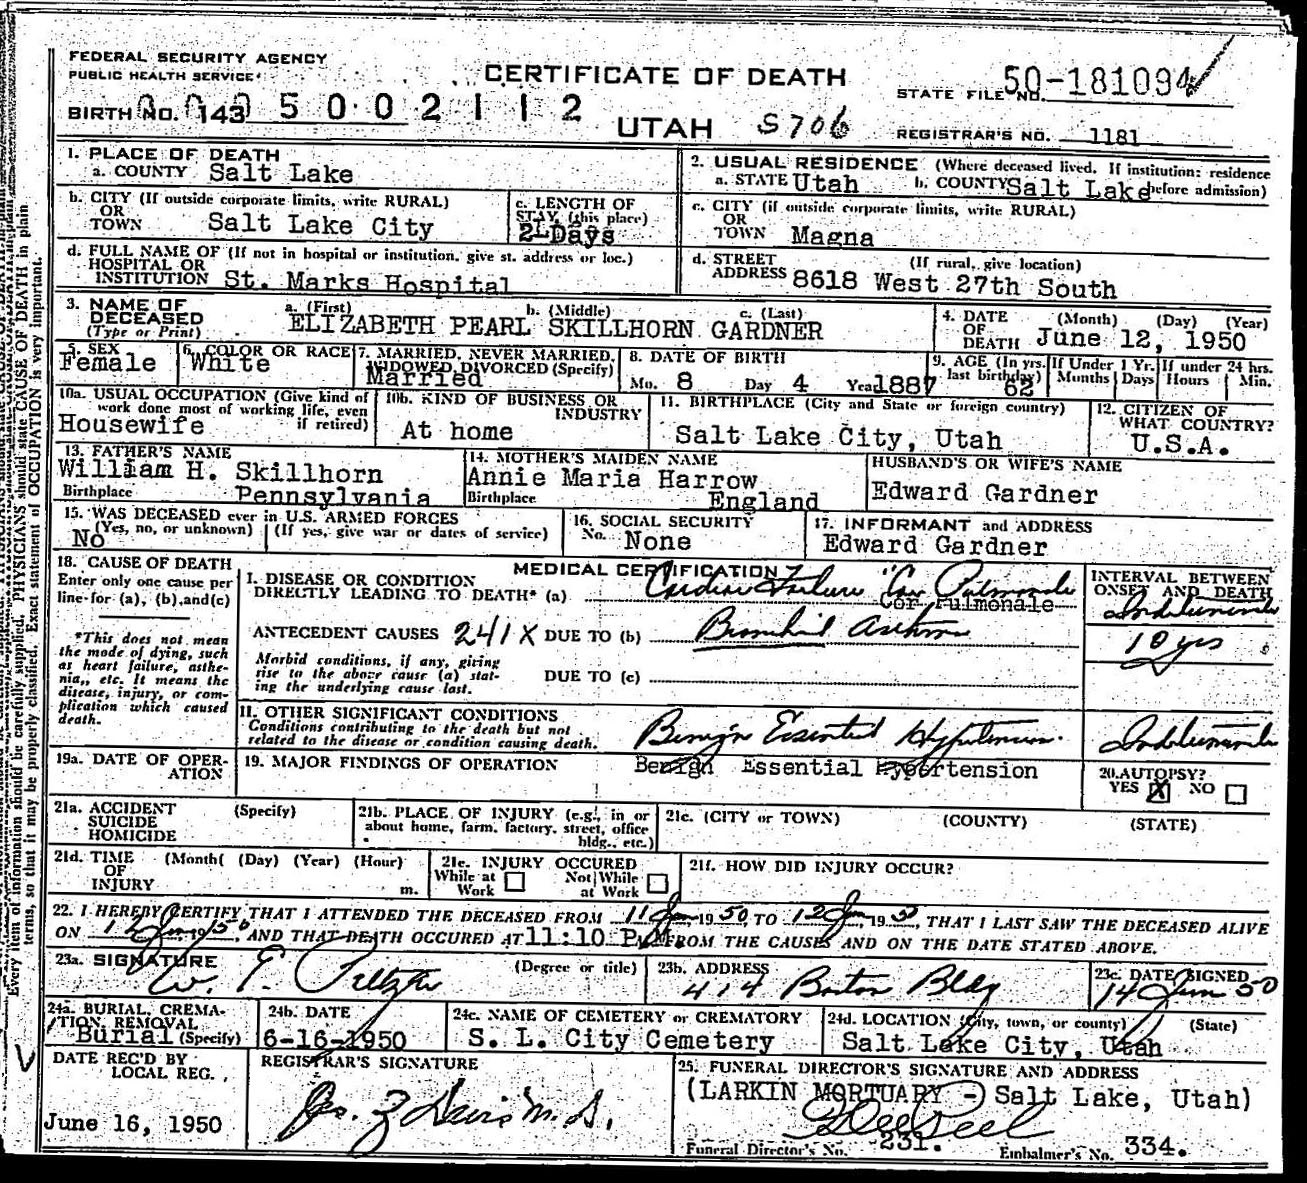 FEDERAL SECURITY AGENCY
PUBLIC HEALTH SERVICE
CERTIFICATE OF DEATH
STATE FILE NO. 50-181094
BIRTH NO. 143
5 0 0 2 1 1 2
UTAH S706
REGISTRAR'S NO. 1181
1. PLACE OF DEATH
a. COUNTY Salt Lake
2. USUAL RESIDENCE (Where deceased lived. If institution: residence before admission)
a. STATE Utah b. COUNTY Salt Lake
b. CITY (If outside corporate limits, write RURAL)
OR
TOWN Salt Lake City
c. LENGTH OF
STAY (this place)
Days
c. CITY (if outside corporate limits, write RURAL)
OR
TOWN Magna
d. FULL NAME OF (If not in hospital or institution, give st. address or loc.)
HOSPITAL OR
INSTITUTION St. Marks Hospital
d. STREET (If rural, give location)
ADDRESS 8618 West 27th South
3. NAME OF DECEASED
(Type or Print)
a. (First) b. (Middle) c. (Last)
ELIZABETH PEARL SKILLHORN GARDNER
4. DATE OF DEATH (Month) (Day) (Year)
June 12, 1950
5. SEX
Female
6. COLOR OR RACE
White
7. MARRIED, NEVER MARRIED,
WIDOWED, DIVORCED (Specify)
Married
8. DATE OF BIRTH
Mo. 8 Day 4 Year 1887
9. AGE (In yrs. last birthday) 62
If Under 1 Yr.
Months Days
If under 24 hrs.
Hours Min.
10a. USUAL OCCUPATION (Give kind of
work done most of working life, even
if retired)
Housewife
10b. KIND OF BUSINESS OR
INDUSTRY
At home
11. BIRTHPLACE (City and State or foreign country)
Salt Lake City, Utah
12. CITIZEN OF
WHAT COUNTRY?
U.S.A.
13. FATHER'S NAME
William H. Skillhorn
Birthplace Pennsylvania
14. MOTHER'S MAIDEN NAME
Annie Maria Harrow
Birthplace England
HUSBAND'S OR WIFE'S NAME
Edward Gardner
15. WAS DECEASED ever in U.S. ARMED FORCES
(Yes, no, or unknown) (If yes, give war or dates of service)
No
16. SOCIAL SECURITY
No. None
17. INFORMANT and ADDRESS
Edward Gardner
18. CAUSE OF DEATH
Enter only one cause per
line for (a), (b), and (c)
*This does not mean
the mode of dying, such
as heart failure, asthe-
nia, etc. It means the
disease, injury, or com-
plication which caused
death.
MEDICAL CERTIFICATION
I. DISEASE OR CONDITION
DIRECTLY LEADING TO DEATH* (a) Cardiac Failure "Cor Pulmonale
Cor Pulmonale
INTERVAL BETWEEN
ONSET AND DEATH
ANTECEDENT CAUSES 241X DUE TO (b) Bronchial Asthma
10 yrs
Morbid conditions, if any, giving
rise to the above cause (a) stat-
ing the underlying cause last.
DUE TO (c)
11. OTHER SIGNIFICANT CONDITIONS
Conditions contributing to the death but not
related to the disease or condition causing death.
Benign Essential Hypertension.
Benign Essential Hypertension
19a. DATE OF OPER-
ATION
19. MAJOR FINDINGS OF OPERATION
20. AUTOPSY?
YES X NO
21a. ACCIDENT (Specify)
SUICIDE
HOMICIDE
21b. PLACE OF INJURY (e.g., in or
about home, farm, factory, street, office
bldg., etc.)
21c. (CITY or TOWN) (COUNTY) (STATE)
21d. TIME (Month( (Day) (Year) (Hour)
OF
INJURY m.
21e. INJURY OCCURED
While at Work
Not While at Work
21f. HOW DID INJURY OCCUR?
22. I HEREBY CERTIFY THAT I ATTENDED THE DECEASED FROM 11 Jun 1950, TO 12 Jun, 1950, THAT I LAST SAW THE DECEASED ALIVE
ON 12 Jun 1950, AND THAT DEATH OCCURED AT 11:10 P.M. FROM THE CAUSES AND ON THE DATE STATED ABOVE.
23a. SIGNATURE (Degree or title)
W. E.
23b. ADDRESS
414 Boston Bldg
23c. DATE SIGNED
14 Jun 50
24a. BURIAL, CREMA-
TION, REMOVAL
Burial (Specify)
24b. DATE
6-16-1950
24c. NAME OF CEMETERY or CREMATORY
S. L. City Cemetery
24d. LOCATION (City, town, or county) (State)
Salt Lake City, Utah
DATE REC'D BY
LOCAL REG.
June 16, 1950
REGISTRAR'S SIGNATURE
25. FUNERAL DIRECTOR'S SIGNATURE AND ADDRESS
(LARKIN MORTUARY - Salt Lake, Utah)
Funeral Director's No. 231.
Embalmer's No. 334.